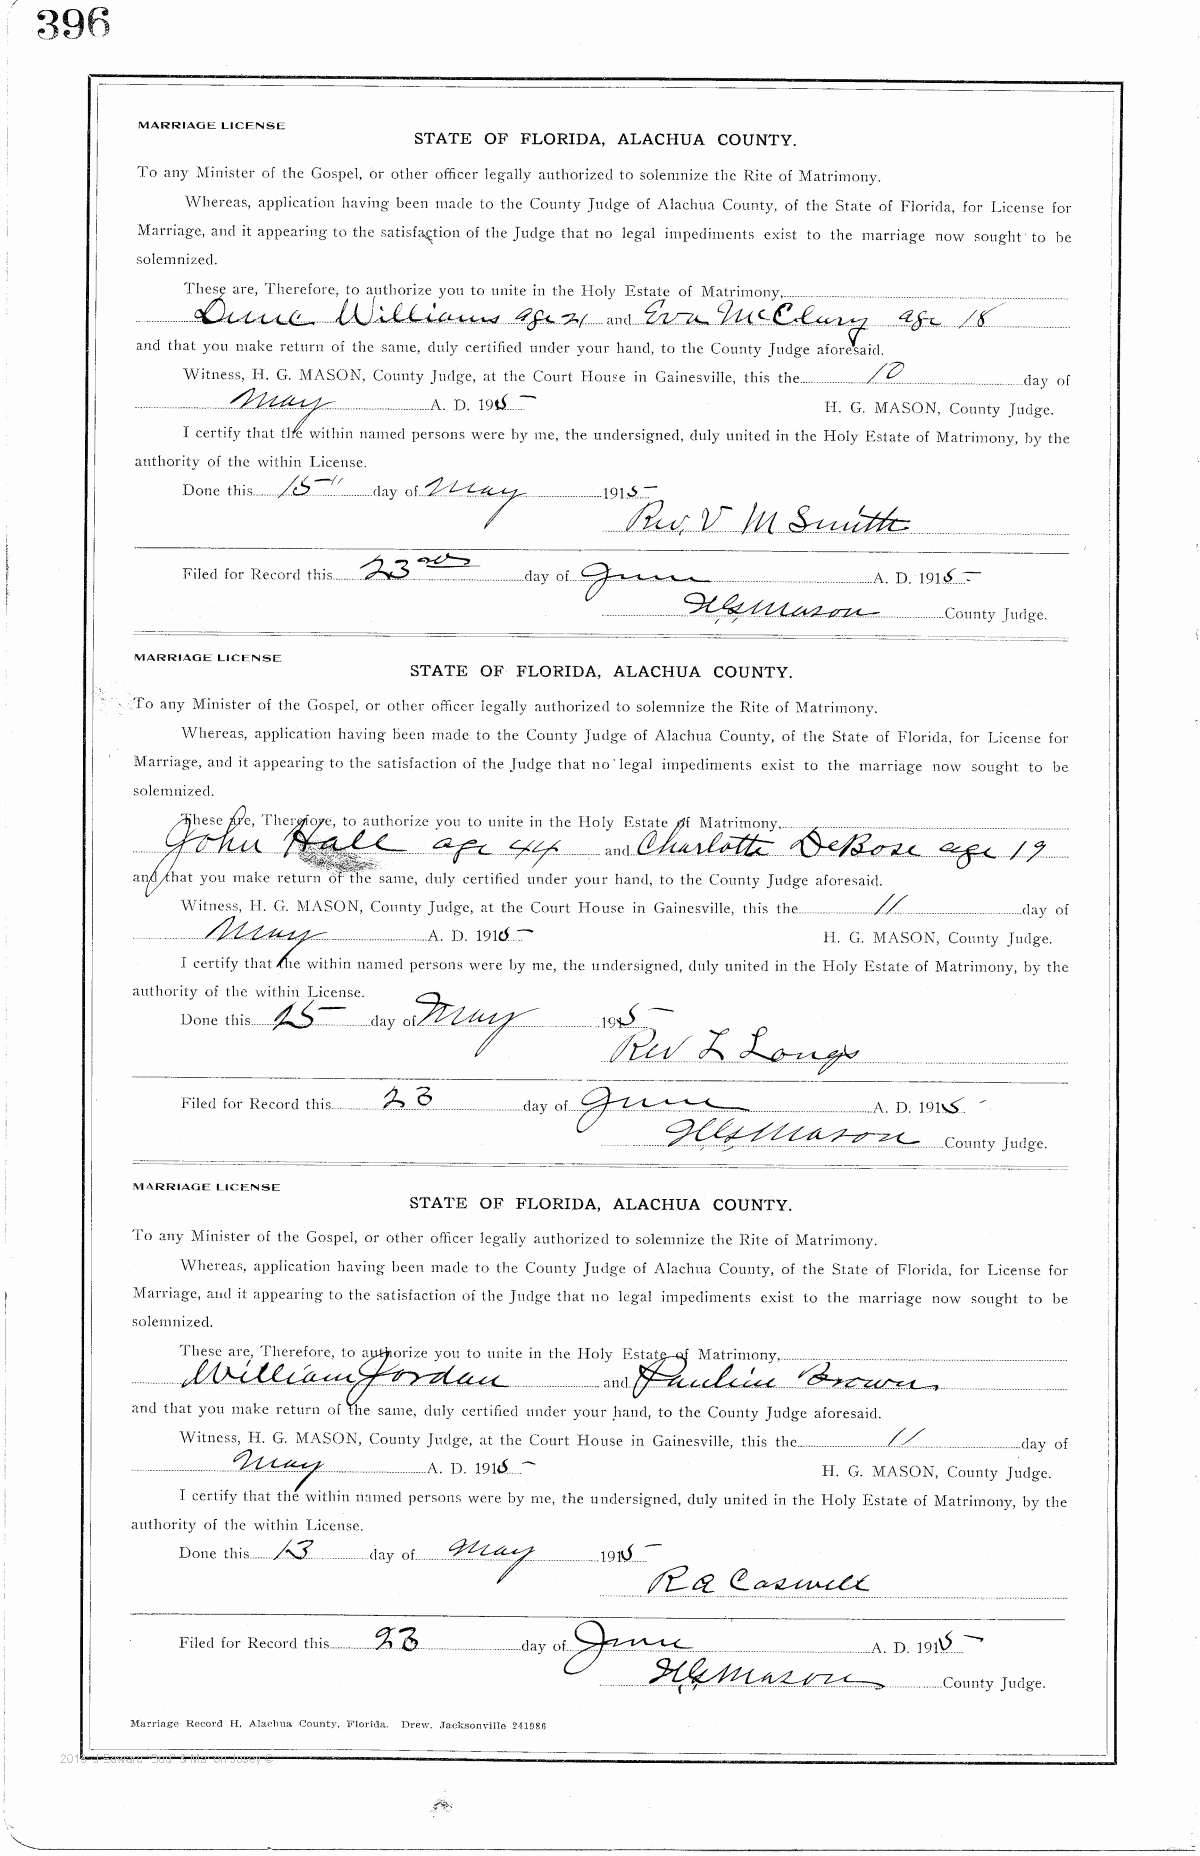 396
MARRIAGE LICENSE
STATE OF FLORIDA, ALACHUA COUNTY.
To any Minister of the Gospel, or other officer legally authorized to solemnize the Rite of Matrimony.
Whereas, application having been made to the County Judge of Alachua County, of the State of Florida, for License for
Marriage, and it appearing to the satisfaction of the Judge that no legal impediments exist to the marriage now sought to be
solemnized.
These are, Therefore, to authorize you to unite in the Holy Estate of Matrimony,
Williams age 21 and Eva McClury age 18
and that you make return of the same, duly certified under your hand, to the County Judge aforesaid.
Witness, H. G. MASON, County Judge, at the Court House in Gainesville, this the 10 day of
May A. D. 1915 H. G. MASON, County Judge.
I certify that the within named persons were by me, the undersigned, duly united in the Holy Estate of Matrimony, by the
authority of the within License.
Done this 15" day of May 1915
Rev. V M Smith
Filed for Record this 23rd day of June A. D. 1915
H. G. Mason County Judge.
MARRIAGE LICENSE
STATE OF FLORIDA, ALACHUA COUNTY.
To any Minister of the Gospel, or other officer legally authorized to solemnize the Rite of Matrimony.
Whereas, application having been made to the County Judge of Alachua County, of the State of Florida, for License for
Marriage, and it appearing to the satisfaction of the Judge that no legal impediments exist to the marriage now sought to be
solemnized.
These are, Therefore, to authorize you to unite in the Holy Estate of Matrimony,
John Hall age 44 and Charlotte DeBose age 19
and that you make return of the same, duly certified under your hand, to the County Judge aforesaid.
Witness, H. G. MASON, County Judge, at the Court House in Gainesville, this the 11 day of
May A. D. 1915 H. G. MASON, County Judge.
I certify that the within named persons were by me, the undersigned, duly united in the Holy Estate of Matrimony, by the
authority of the within License.
Done this 15 day of May 1915
Rev L Longs
Filed for Record this 23 day of June A. D. 1915
H. G. Mason County Judge.
MARRIAGE LICENSE
STATE OF FLORIDA, ALACHUA COUNTY.
To any Minister of the Gospel, or other officer legally authorized to solemnize the Rite of Matrimony.
Whereas, application having been made to the County Judge of Alachua County, of the State of Florida, for License for
Marriage, and it appearing to the satisfaction of the Judge that no legal impediments exist to the marriage now sought to be
solemnized.
These are, Therefore, to authorize you to unite in the Holy Estate of Matrimony,
William Jordan and Pauline Brown
and that you make return of the same, duly certified under your hand, to the County Judge aforesaid.
Witness, H. G. MASON, County Judge, at the Court House in Gainesville, this the 11 day of
May A. D. 1915 H. G. MASON, County Judge.
I certify that the within named persons were by me, the undersigned, duly united in the Holy Estate of Matrimony, by the
authority of the within License.
Done this 13 day of May 1915
R A Caswell
Filed for Record this 23 day of June A. D. 1915
H. G. Mason County Judge.
Marriage Record H, Alachua County, Florida. Drew, Jacksonville 241986